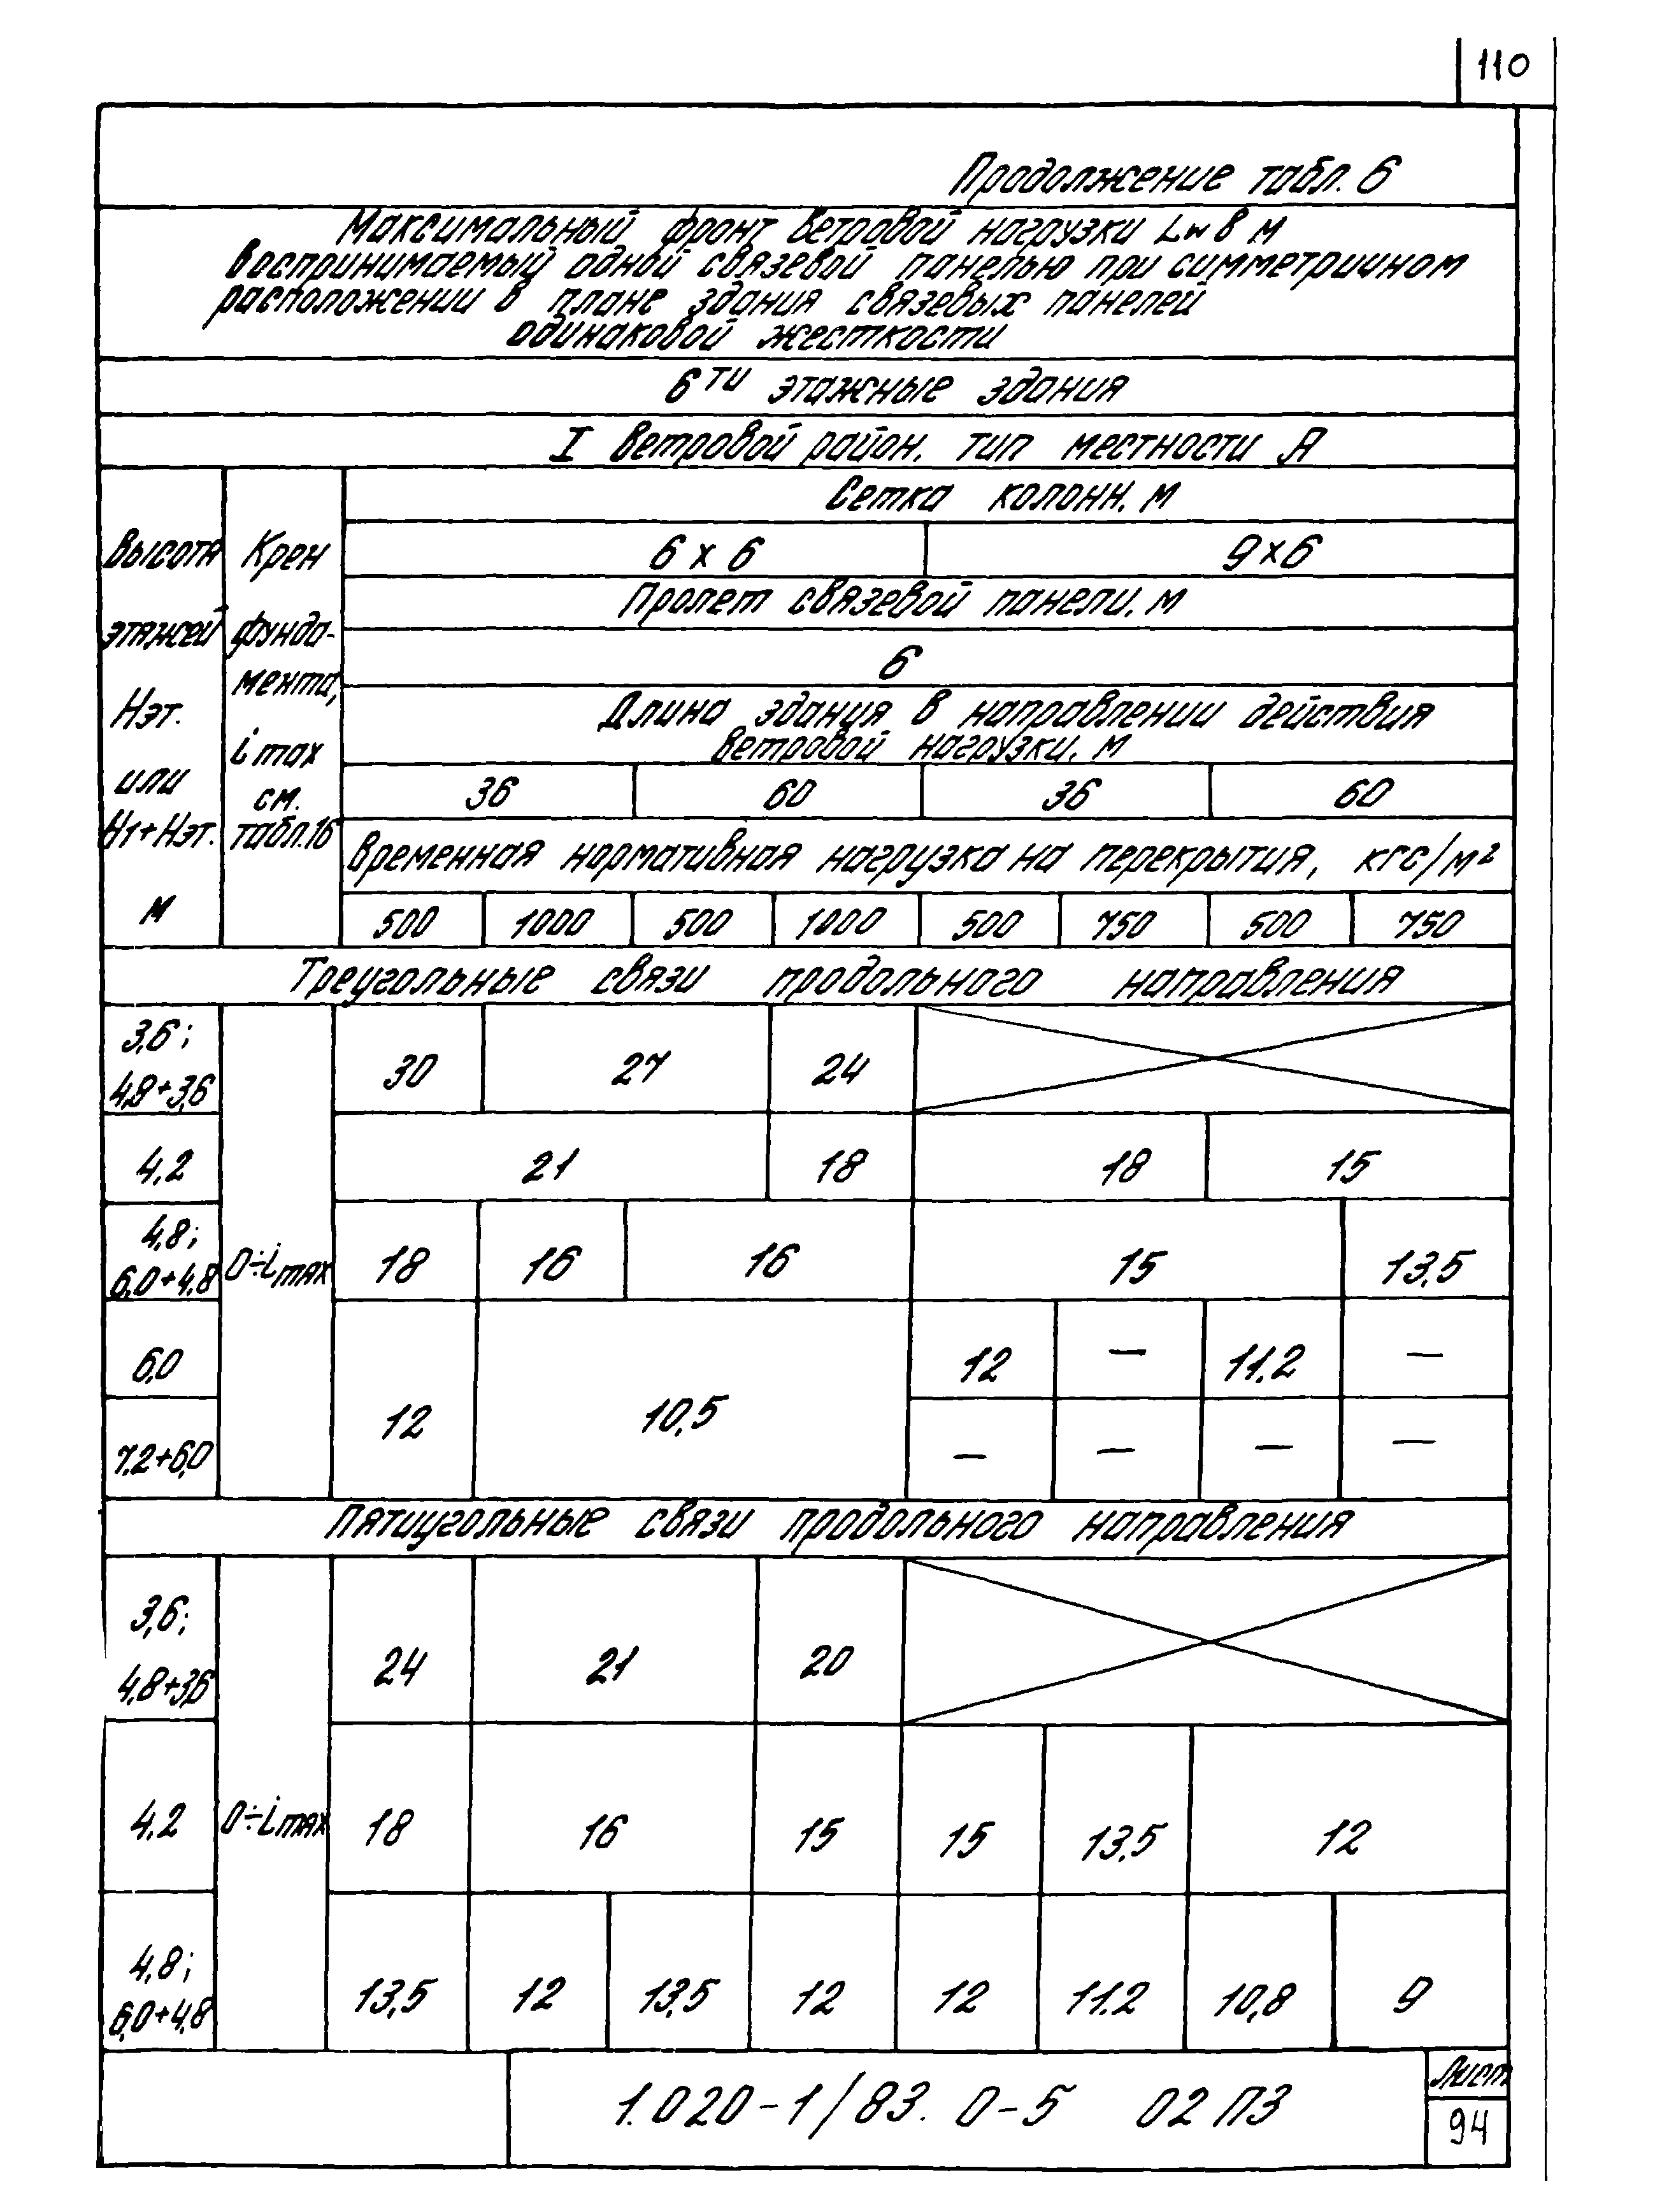 110
Продолжение табл. 6
Максимальный фронт ветровой нагрузки Lw в м
воспринимаемый одной связевой панелью при симметричном
расположении в плане здания связевых панелей
одинаковой жесткости
6ти этажные здания
I ветровой район. тип местности А
Высота этажей Нэт. или Н1+Нэт. м
Крен фунда-мента, i max см. табл.16
Сетка колонн. м
6 x 6 9 x 6
Пролет связевой панели. м
6
Длина здания в направлении действия
ветровой нагрузки. м
36 60 36 60
Временная нормативная нагрузка на перекрытия, кгс/м²
500 1000 500 1000 500 750 500 750
Треугольные связи продольного направления
3,6;
4,8+3,6 30 27 24
4,2 21 18 18 15
4,8;
6,0+4,8 0÷imax 18 16 16 15 13,5
6,0 12 — 11.2 —
12 10,5
7.2+6,0 — — — —
Пятиугольные связи продольного направления
3,6;
4,8+3,6 24 21 20
4.2 0÷imax 18 16 15 15 13.5 12
4,8;
6,0+4,8 13,5 12 13,5 12 12 11.2 10,8 9
1.020-1/83. 0-5 02 ПЗ
Лист
94